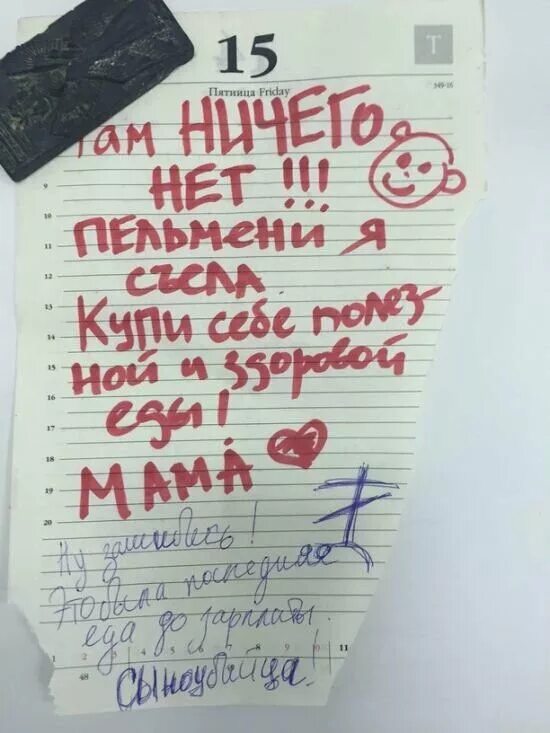 15
Т
Пятница Friday
349-16
Там НИЧЕГО
НЕТ !!!
ПЕЛЬМЕНИ Я
СЪЕЛА.
Купи себе полез-
ной и здоровой
еды!
МАМА
Ну зашибись!
Это была последняя
еда до зарплаты.
СЫНоубийца!
9
10
11
12
13
14
15
16
17
18
19
20
1 2 3 4 5 6 7 8 9 10 11
48